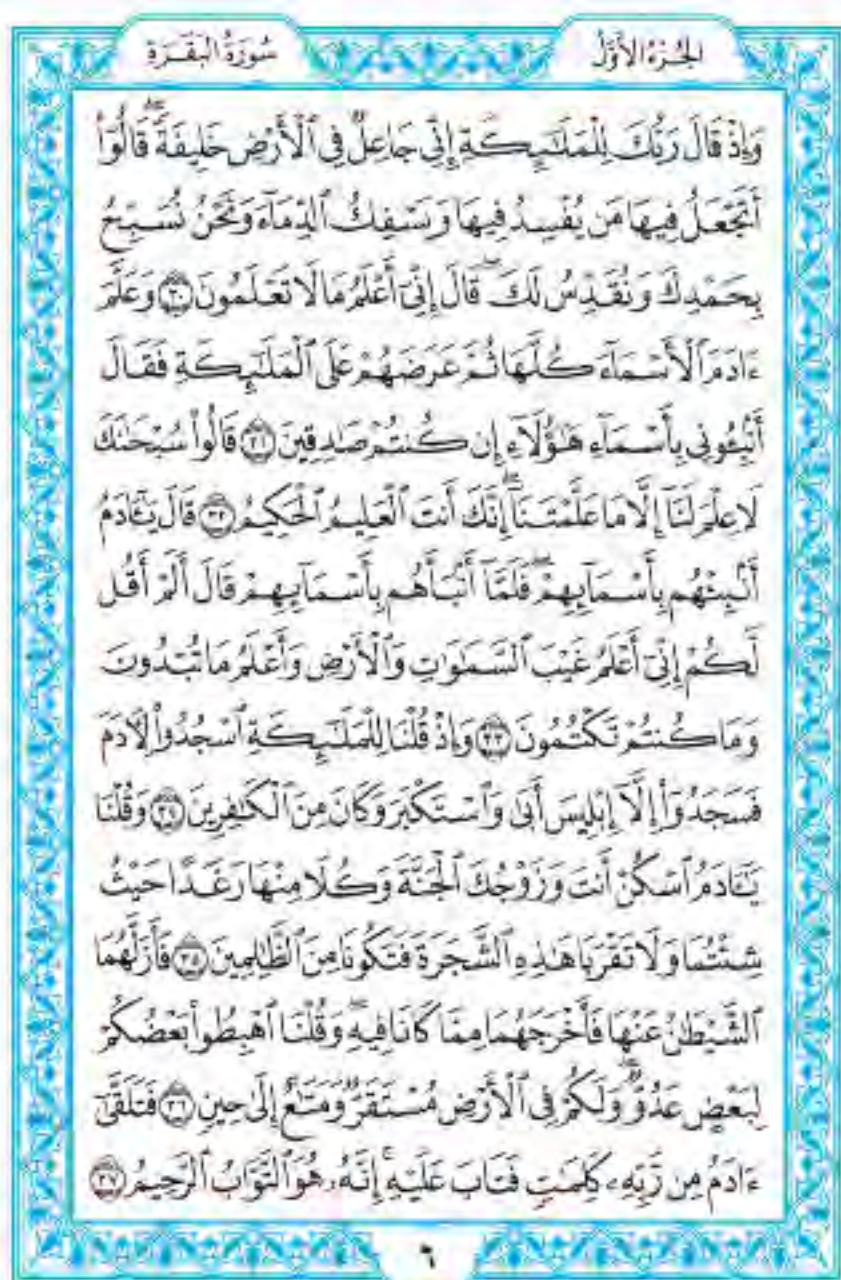 الجزء الأول
سورة البقرة
وَإِذْ قَالَ رَبُّكَ لِلْمَلَٰٓئِكَةِ إِنِّي جَاعِلٌ فِي ٱلْأَرْضِ خَلِيفَةًۖ قَالُوٓا۟
أَتَجْعَلُ فِيهَا مَن يُفْسِدُ فِيهَا وَيَسْفِكُ ٱلدِّمَآءَ وَنَحْنُ نُسَبِّحُ
بِحَمْدِكَ وَنُقَدِّسُ لَكَۖ قَالَ إِنِّيٓ أَعْلَمُ مَا لَا تَعْلَمُونَ ٣٠ وَعَلَّمَ
ءَادَمَ ٱلْأَسْمَآءَ كُلَّهَا ثُمَّ عَرَضَهُمْ عَلَى ٱلْمَلَٰٓئِكَةِ فَقَالَ
أَنۢبِـُٔونِي بِأَسْمَآءِ هَٰٓؤُلَآءِ إِن كُنتُمْ صَٰدِقِينَ ٣١ قَالُوا۟ سُبْحَٰنَكَ
لَا عِلْمَ لَنَآ إِلَّا مَا عَلَّمْتَنَآۖ إِنَّكَ أَنتَ ٱلْعَلِيمُ ٱلْحَكِيمُ ٣٢ قَالَ يَٰٓـَٔادَمُ
أَنۢبِئْهُم بِأَسْمَآئِهِمْۖ فَلَمَّآ أَنۢبَأَهُم بِأَسْمَآئِهِمْ قَالَ أَلَمْ أَقُل
لَّكُمْ إِنِّيٓ أَعْلَمُ غَيْبَ ٱلسَّمَٰوَٰتِ وَٱلْأَرْضِ وَأَعْلَمُ مَا تُبْدُونَ
وَمَا كُنتُمْ تَكْتُمُونَ ٣٣ وَإِذْ قُلْنَا لِلْمَلَٰٓئِكَةِ ٱسْجُدُوا۟ لِءَادَمَ
فَسَجَدُوٓا۟ إِلَّآ إِبْلِيسَ أَبَىٰ وَٱسْتَكْبَرَ وَكَانَ مِنَ ٱلْكَٰفِرِينَ ٣٤ وَقُلْنَا
يَٰٓـَٔادَمُ ٱسْكُنْ أَنتَ وَزَوْجُكَ ٱلْجَنَّةَ وَكُلَا مِنْهَا رَغَدًا حَيْثُ
شِئْتُمَا وَلَا تَقْرَبَا هَٰذِهِ ٱلشَّجَرَةَ فَتَكُونَا مِنَ ٱلظَّٰلِمِينَ ٣٥ فَأَزَلَّهُمَا
ٱلشَّيْطَٰنُ عَنْهَا فَأَخْرَجَهُمَا مِمَّا كَانَا فِيهِۖ وَقُلْنَا ٱهْبِطُوا۟ بَعْضُكُمْ
لِبَعْضٍ عَدُوٌّۖ وَلَكُمْ فِي ٱلْأَرْضِ مُسْتَقَرٌّ وَمَتَٰعٌ إِلَىٰ حِينٍ ٣٦ فَتَلَقَّىٰٓ
ءَادَمُ مِن رَّبِّهِۦ كَلِمَٰتٍ فَتَابَ عَلَيْهِۚ إِنَّهُۥ هُوَ ٱلتَّوَّابُ ٱلرَّحِيمُ ٣٧
٦